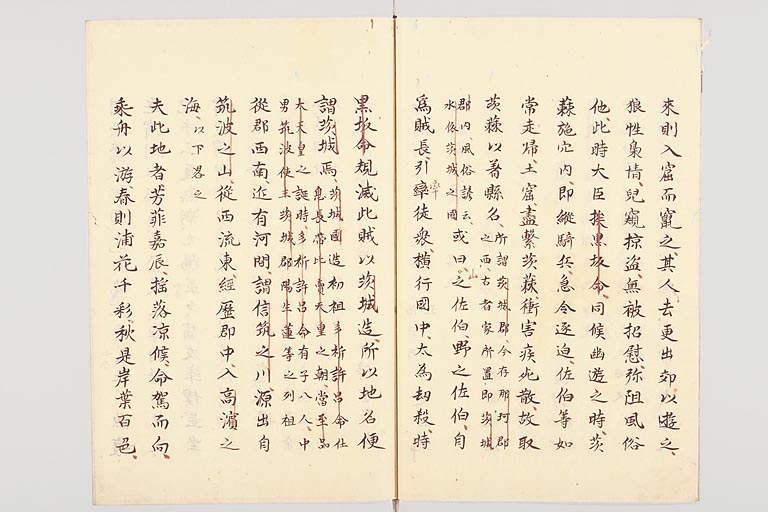 來則入窟而竄之其人去更出郊以遊之
狼性梟情皃窺掠盜無被招慰弥阻風俗
他此時大臣族黒坂命同候幽遊之時茨
蕀施穴内即縱騎兵急令逐迫佐伯等如
常走帰土窟盡繋茨蕀衝害疾死散故取
茨蕀以着縣名所謂茨城郡今存那珂郡
之西古者家所置即茨城
郡内風俗諺云
水依茨城之國
或曰山之佐伯野之佐伯自
為賊長引率徒衆横行國中太為劫殺時
黒坂命規滅此賊以茨城造所以地名便
謂茨城焉茨城國造初祖多祁許呂命仕
息長帯比賣天皇之朝當至品
太天皇之誕時多祁許呂命有子八人中
男筑波使主茨城郡陽生蓮等之列祖
從郡西南近有河間謂信筑之川源出自
筑波之山從西流東經歴郡中入高濱之
海以下畧之
夫此地者芳菲嘉辰揺落凉候命駕而向
乗舟以游春則浦花千彩秋是岸葉百色